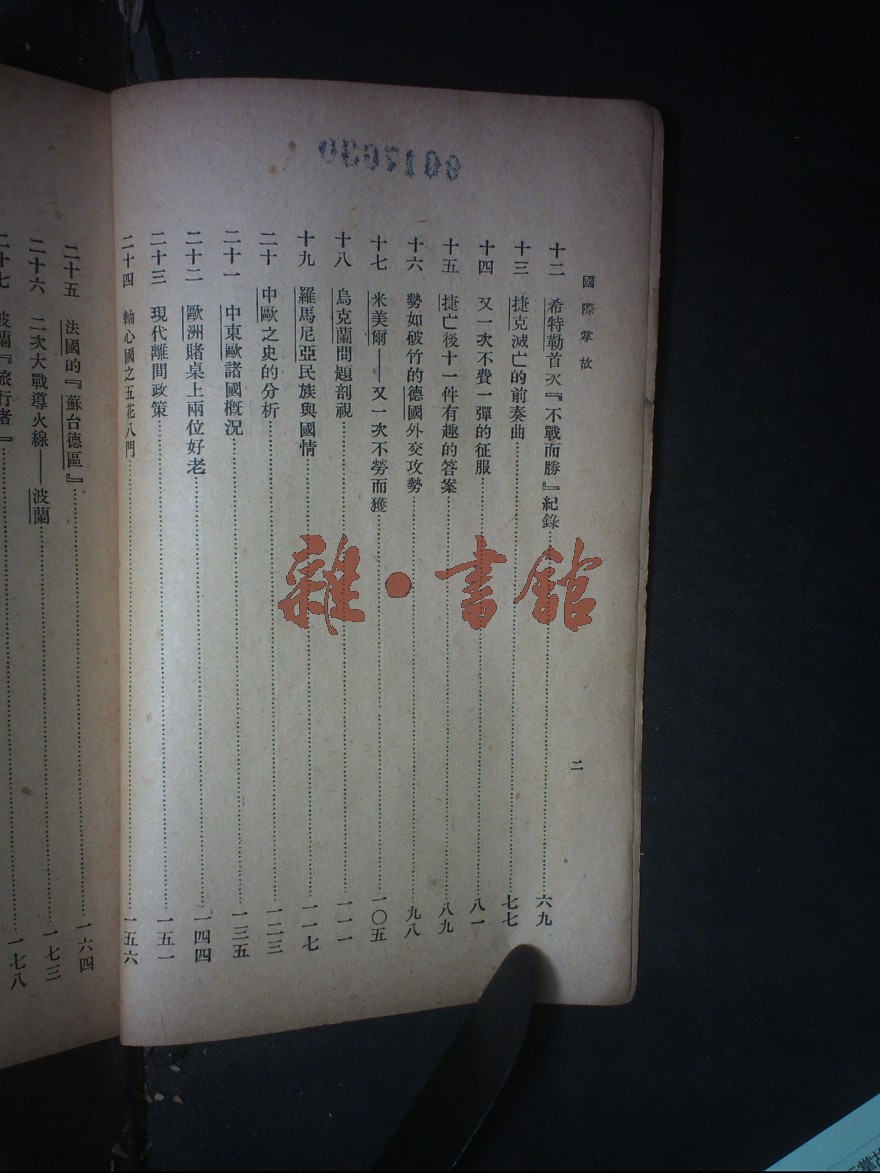 國際掌故
二
十二 希特勒首次『不戰而勝』紀錄……六九
十三 捷克滅亡的前奏曲……七七
十四 又一次不費一彈的征服……八一
十五 捷亡後十一件有趣的答案……八九
十六 勢如破竹的德國外交攻勢……九八
十七 米美爾——又一次不勞而獲……一〇五
十八 烏克蘭問題剖視……一一一
十九 羅馬尼亞民族與國情……一一七
二十 中歐之史的分析……一二三
二十一 中東歐諸國概況……一三五
二十二 歐洲賭桌上兩位好老……一四四
二十三 現代離間政策……一五一
二十四 軸心國之五花八門……一五六
二十五 法國的『蘇台德區』……一六四
二十六 二次大戰導火線——波蘭……一七三
二十七 波蘭『旅行者』……一七八
雜·書館